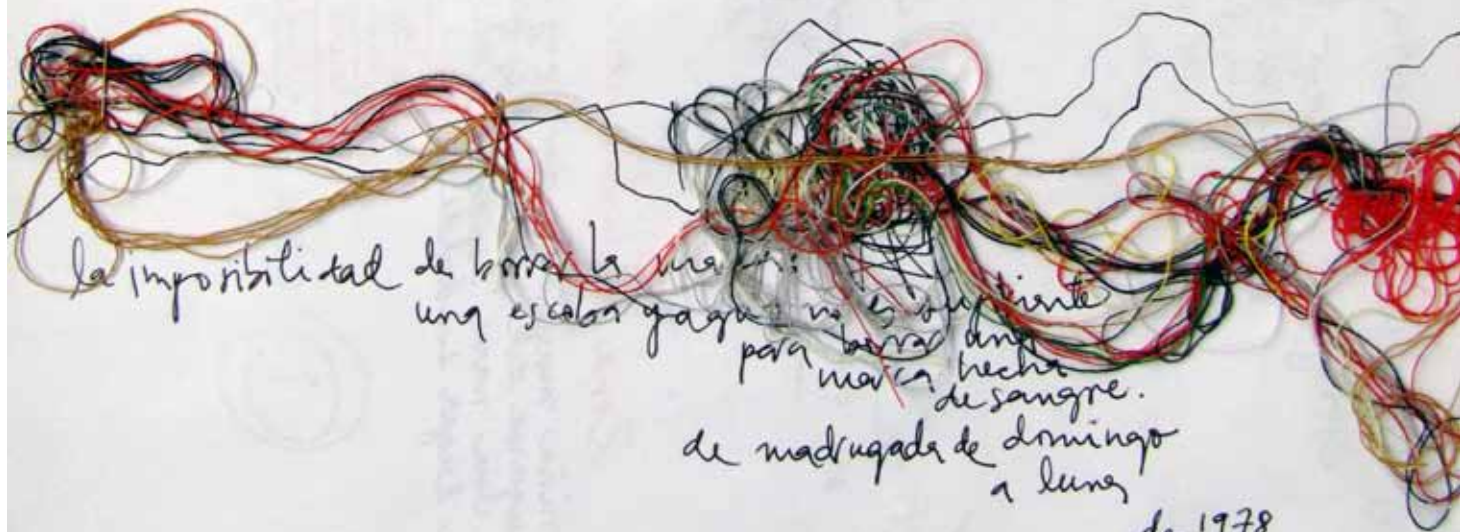 la imposibilidad de borrar la
una escoba y agua no es suficiente
para borrar una
marca hecha
de sangre.
de madrugada de domingo
a lunes
de 1978